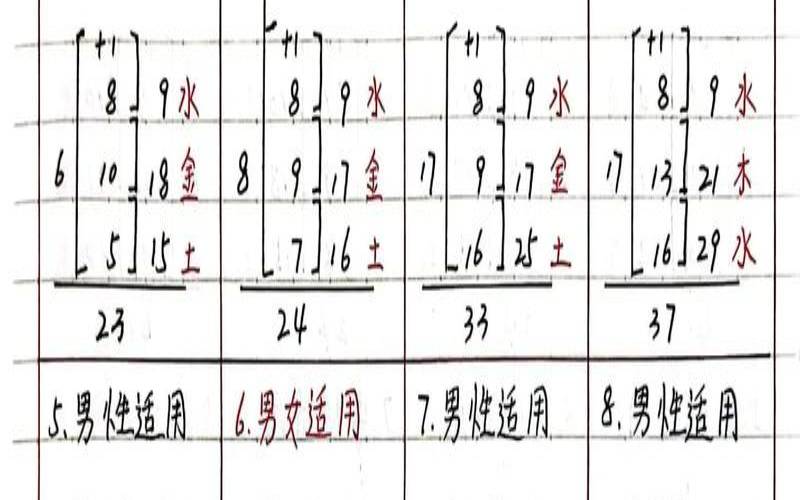 +1 +1 +1 +1
8 9 水 8 9 水 8 9 水 8 9 水
6 10 18 金 8 9 17 金 17 9 17 金 17 13 21 木
5 15 土 7 16 土 16 25 土 16 29 水
23 24 33 37
5.男性适用 6.男女适用 7.男性适用 8.男性适用